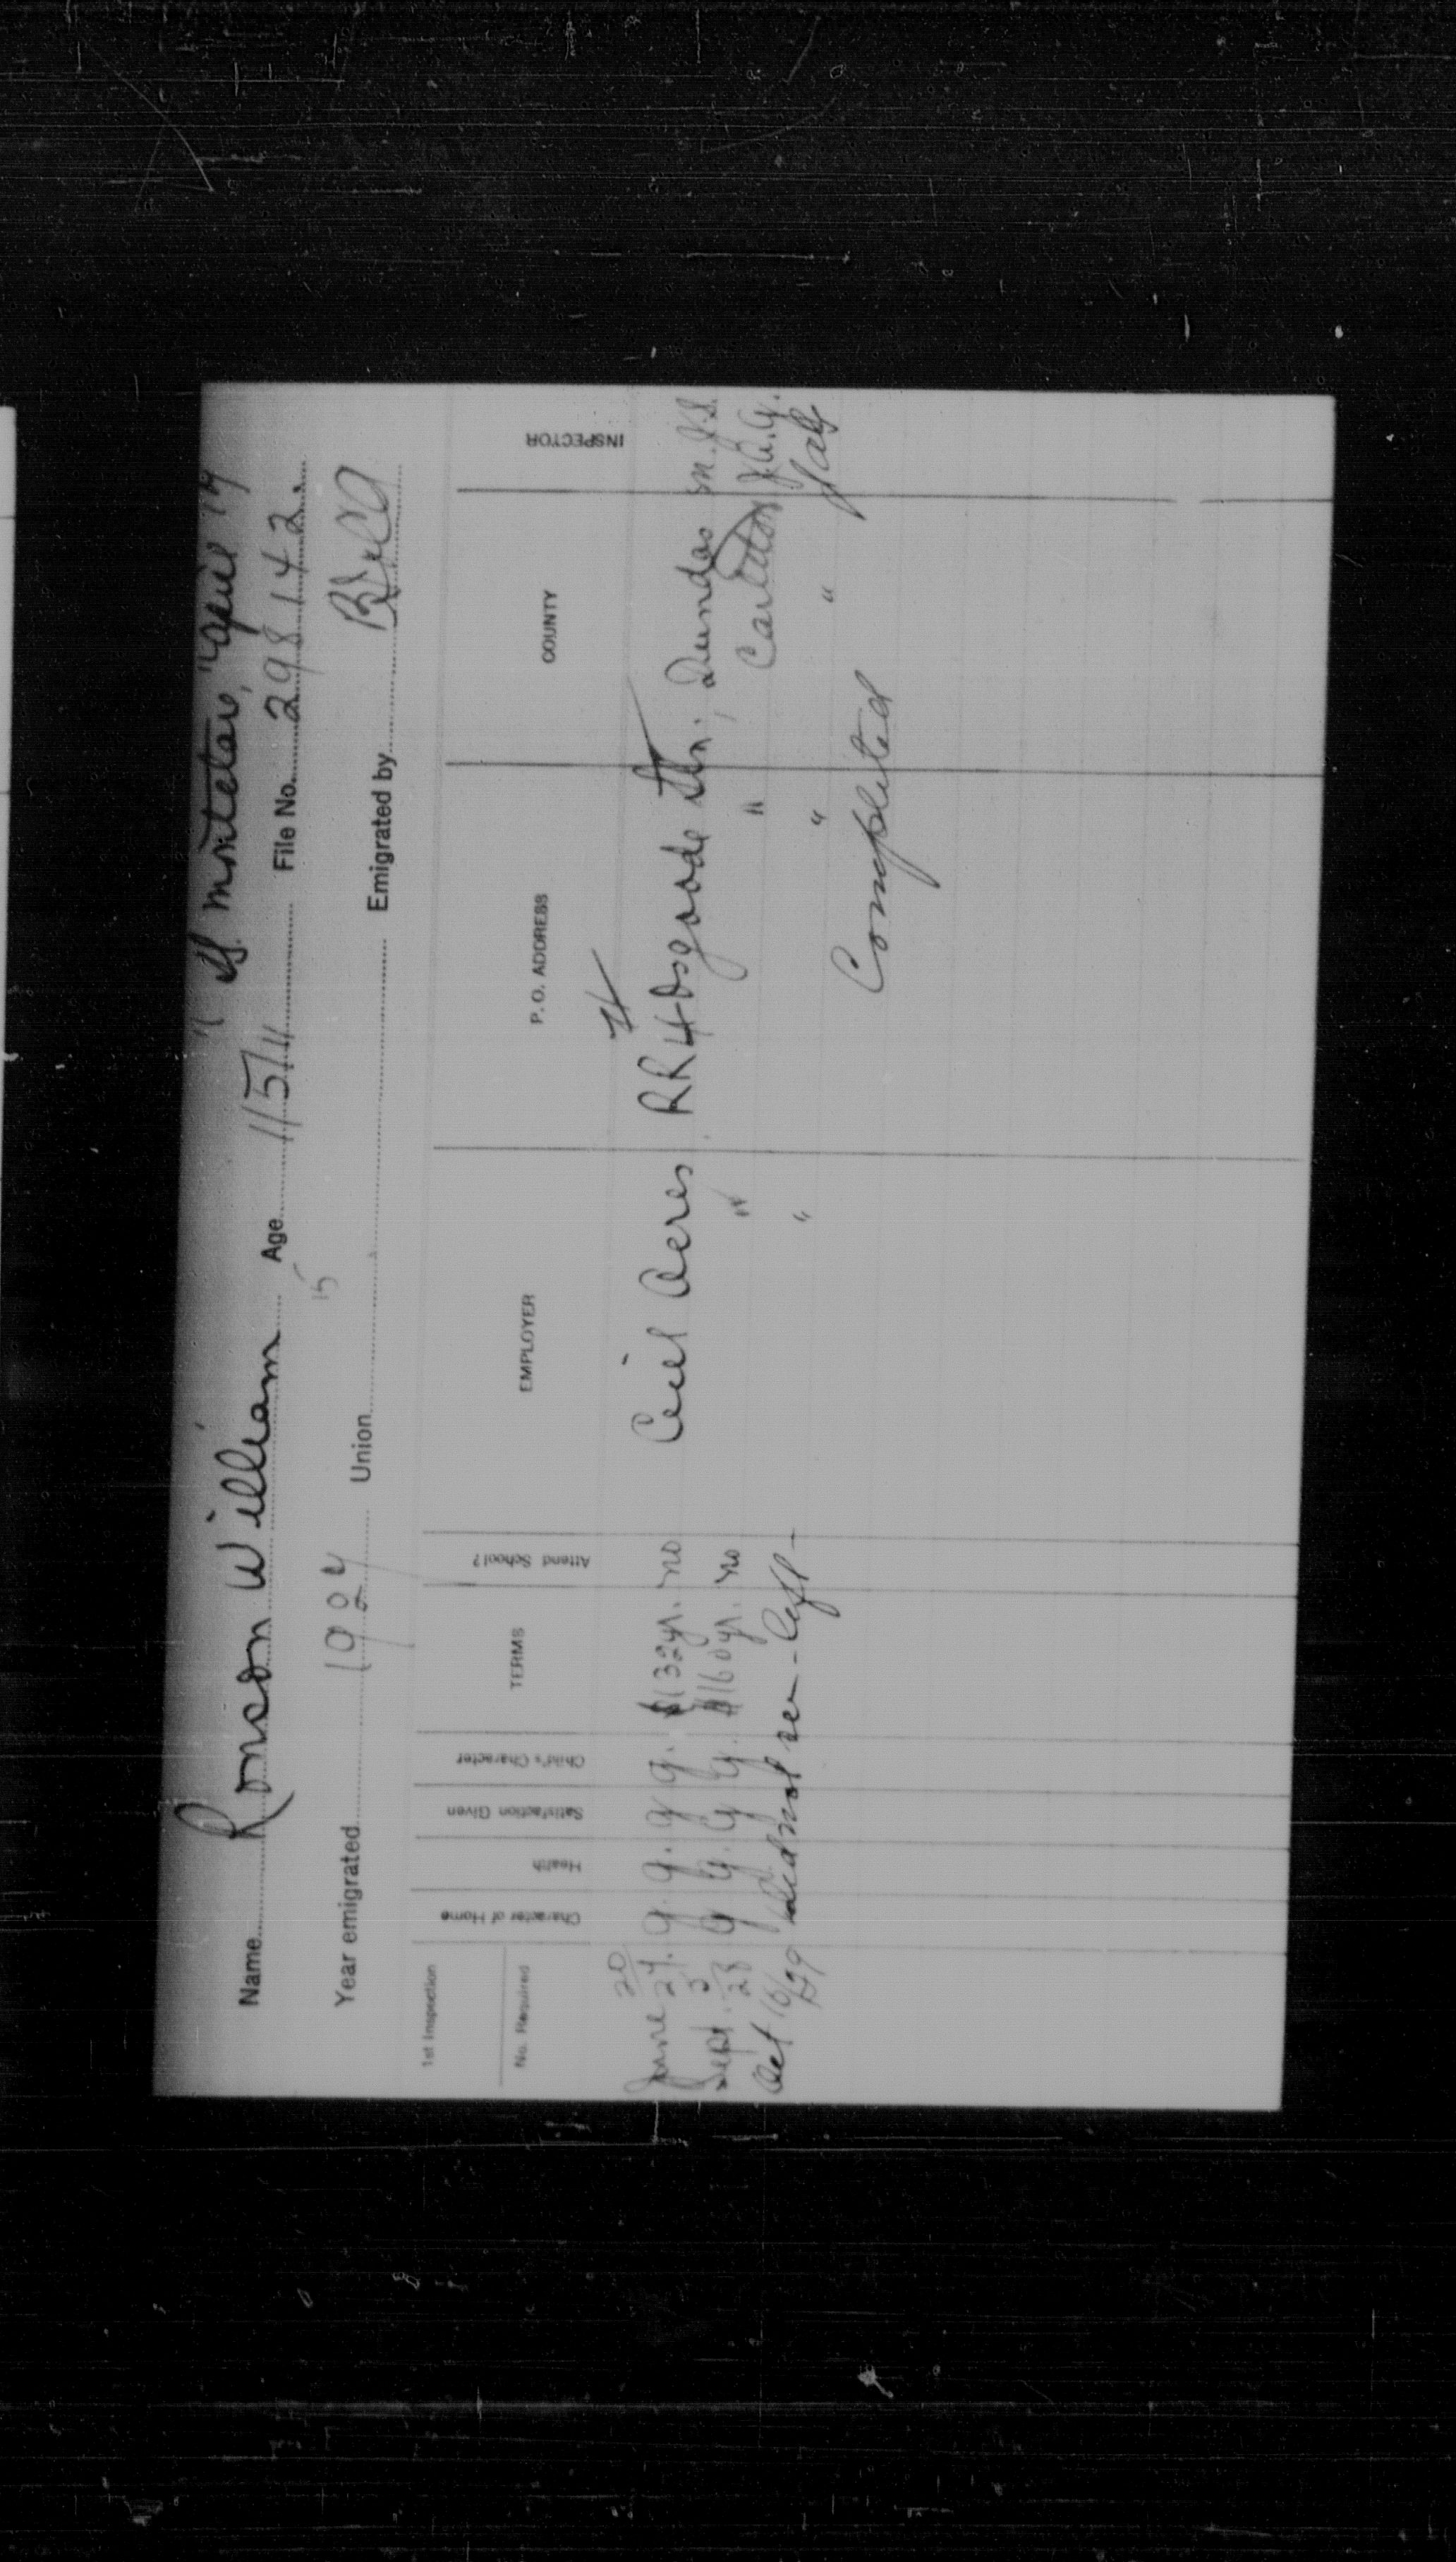 " Montclare," April 14
Name Ronson William Age 15/11 File No. 298142.
15
Year emigrated 1924 Union Emigrated by
1st Inspection
No. Required
Character of Home Health Satisfaction Given Child's Character TERMS Attend School? EMPLOYER P. O. ADDRESS COUNTY INSPECTOR
June 20/27. g. g. g g. $132 yr. no Cecil Acres RR4 Osgoode Stn. Dundas
Sept. 5/28 g g. g g. $160 yr. no " " Carleton
Oct 16/29 Did not see - left - " " "
Completed